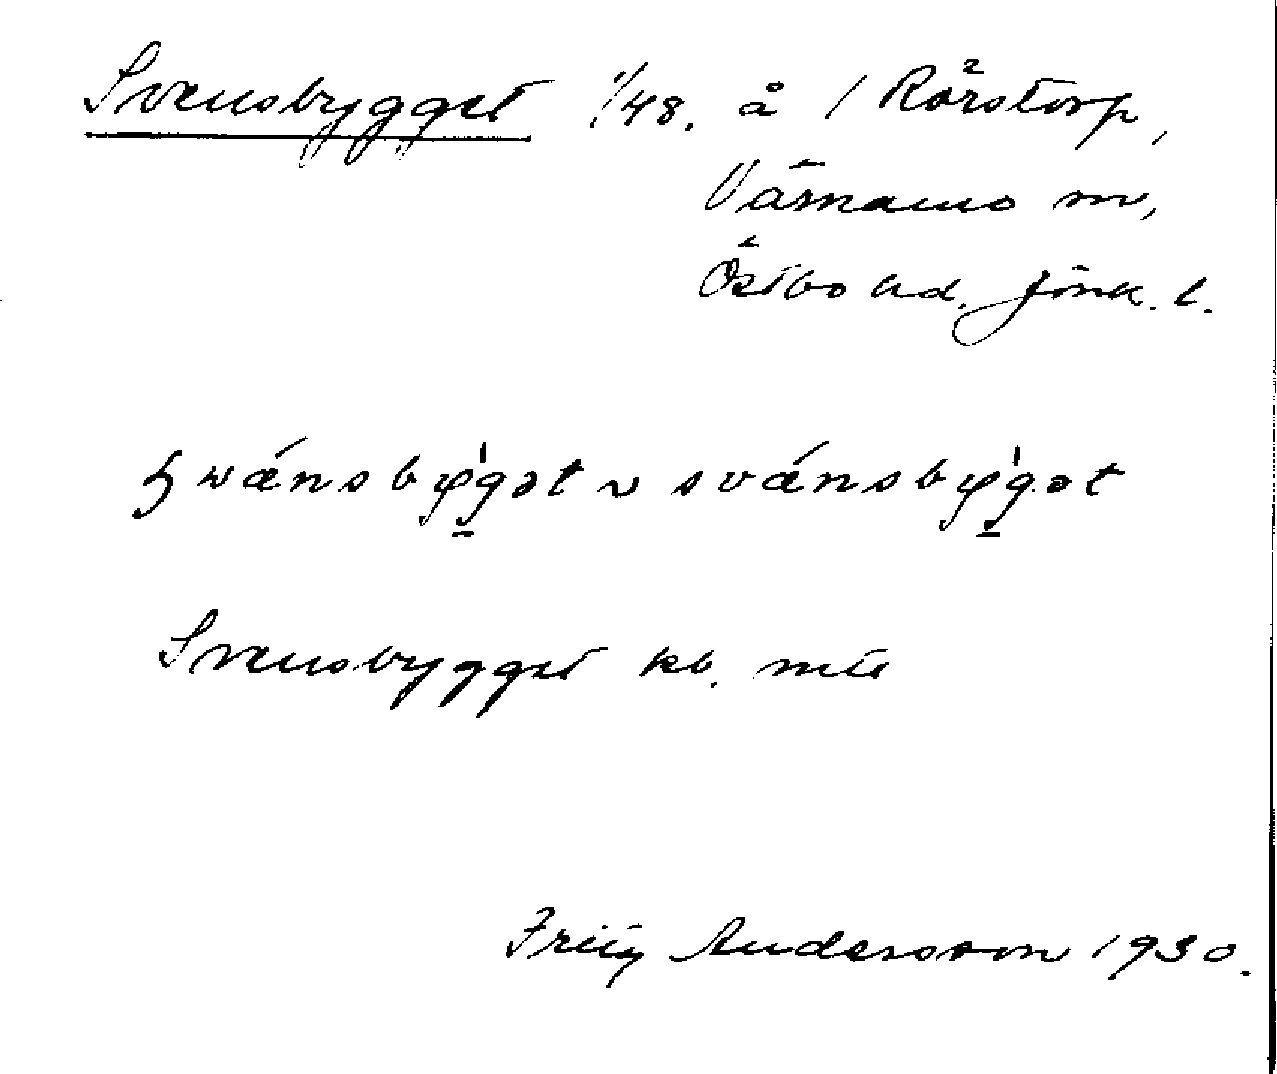 Svensbygget 1/48. å / Rörstorp,
Värnamo
Östbo hd. Jönk. l.
svænsbygət ~ svænsbygət
Svensbygget kb.
Fritz Andersson 1930.